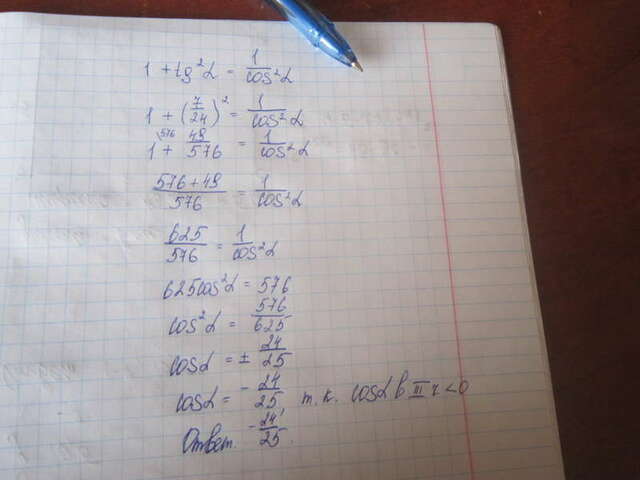 1 + tg²α = 1/cos²α
1 + (7/24)² = 1/cos²α
1 ⁵⁷⁶ + 49/576 = 1/cos²α
576+49/576 = 1/cos²α
625/576 = 1/cos²α
625cos²α = 576
cos²α = 576/625
cosα = ± 24/25
cosα = - 24/25 т.к. cosα в III ч <0
Ответ. -24/25.